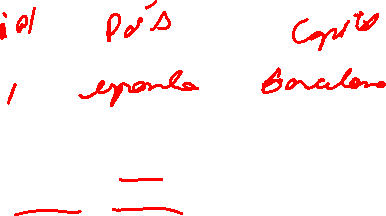 id País Capital
1 españa Barcelona